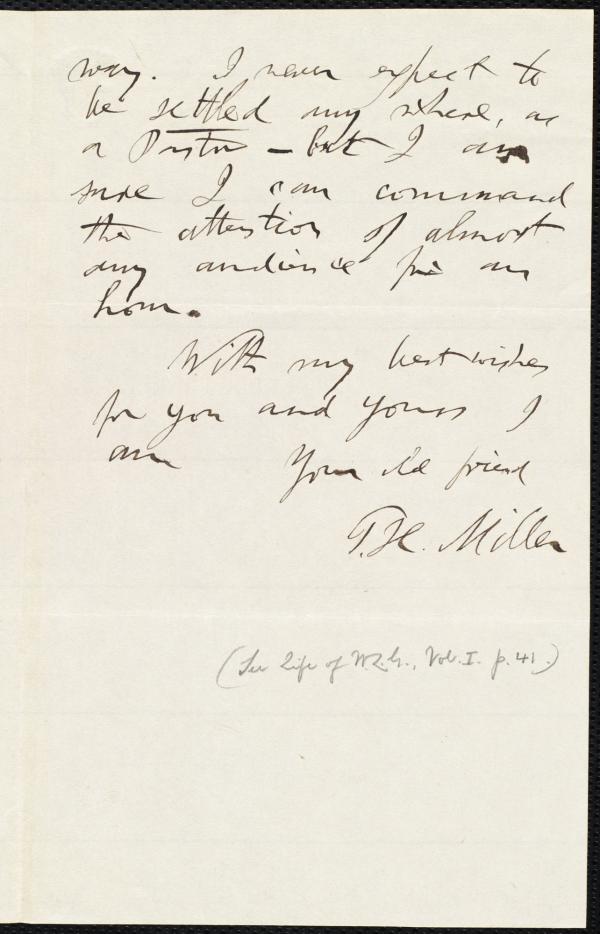 way. I never expect to
be settled any where, as
a Pastor - but I am
sure I can command
the attention of almost
any audience for an
hour.
With my best wishes
for you and yours I
am Your old friend
T. H. Miller
(See Life of W.L.G., Vol. I. p. 41.)